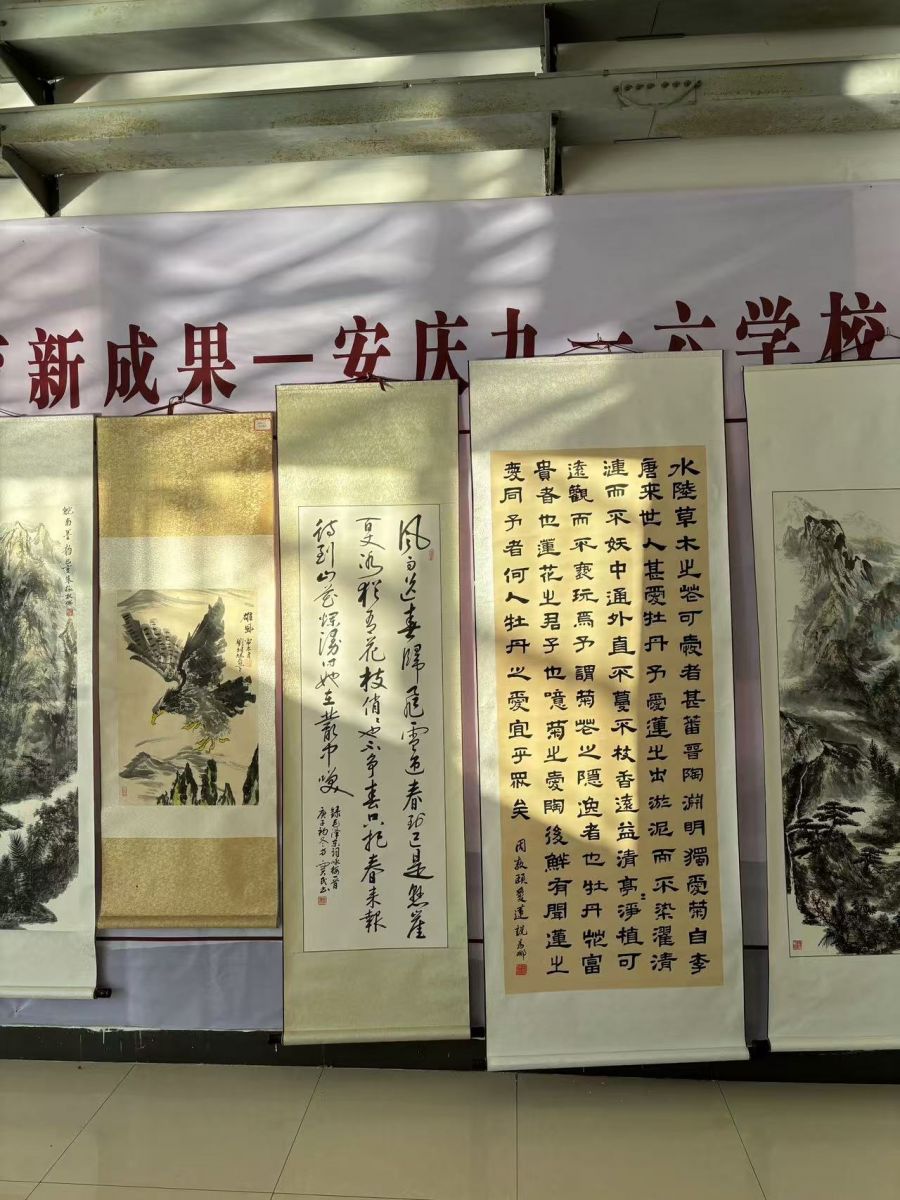 新成果一安庆九一六学校
水陸草木之花可愛者甚蕃晉陶淵明獨愛菊自李
唐来世人甚愛牡丹予愛蓮之出淤泥而不染濯清
漣而不妖中通外直不蔓不枝香遠益清亭淨植可
遠觀而不褻玩焉予謂菊花之隠逸者也牡丹花富
貴者也蓮花之君子也噫菊之愛陶後鮮有聞蓮之
愛同予者何人牡丹之愛宜乎眾矣
周敦頤愛蓮說
风雨送春归飞雪迎春到已是悬崖
百丈冰犹有花枝俏俏也不争春只把春来報
待到山花烂漫时她在叢中笑
录毛泽东词咏梅一首
庚子初冬
雄風